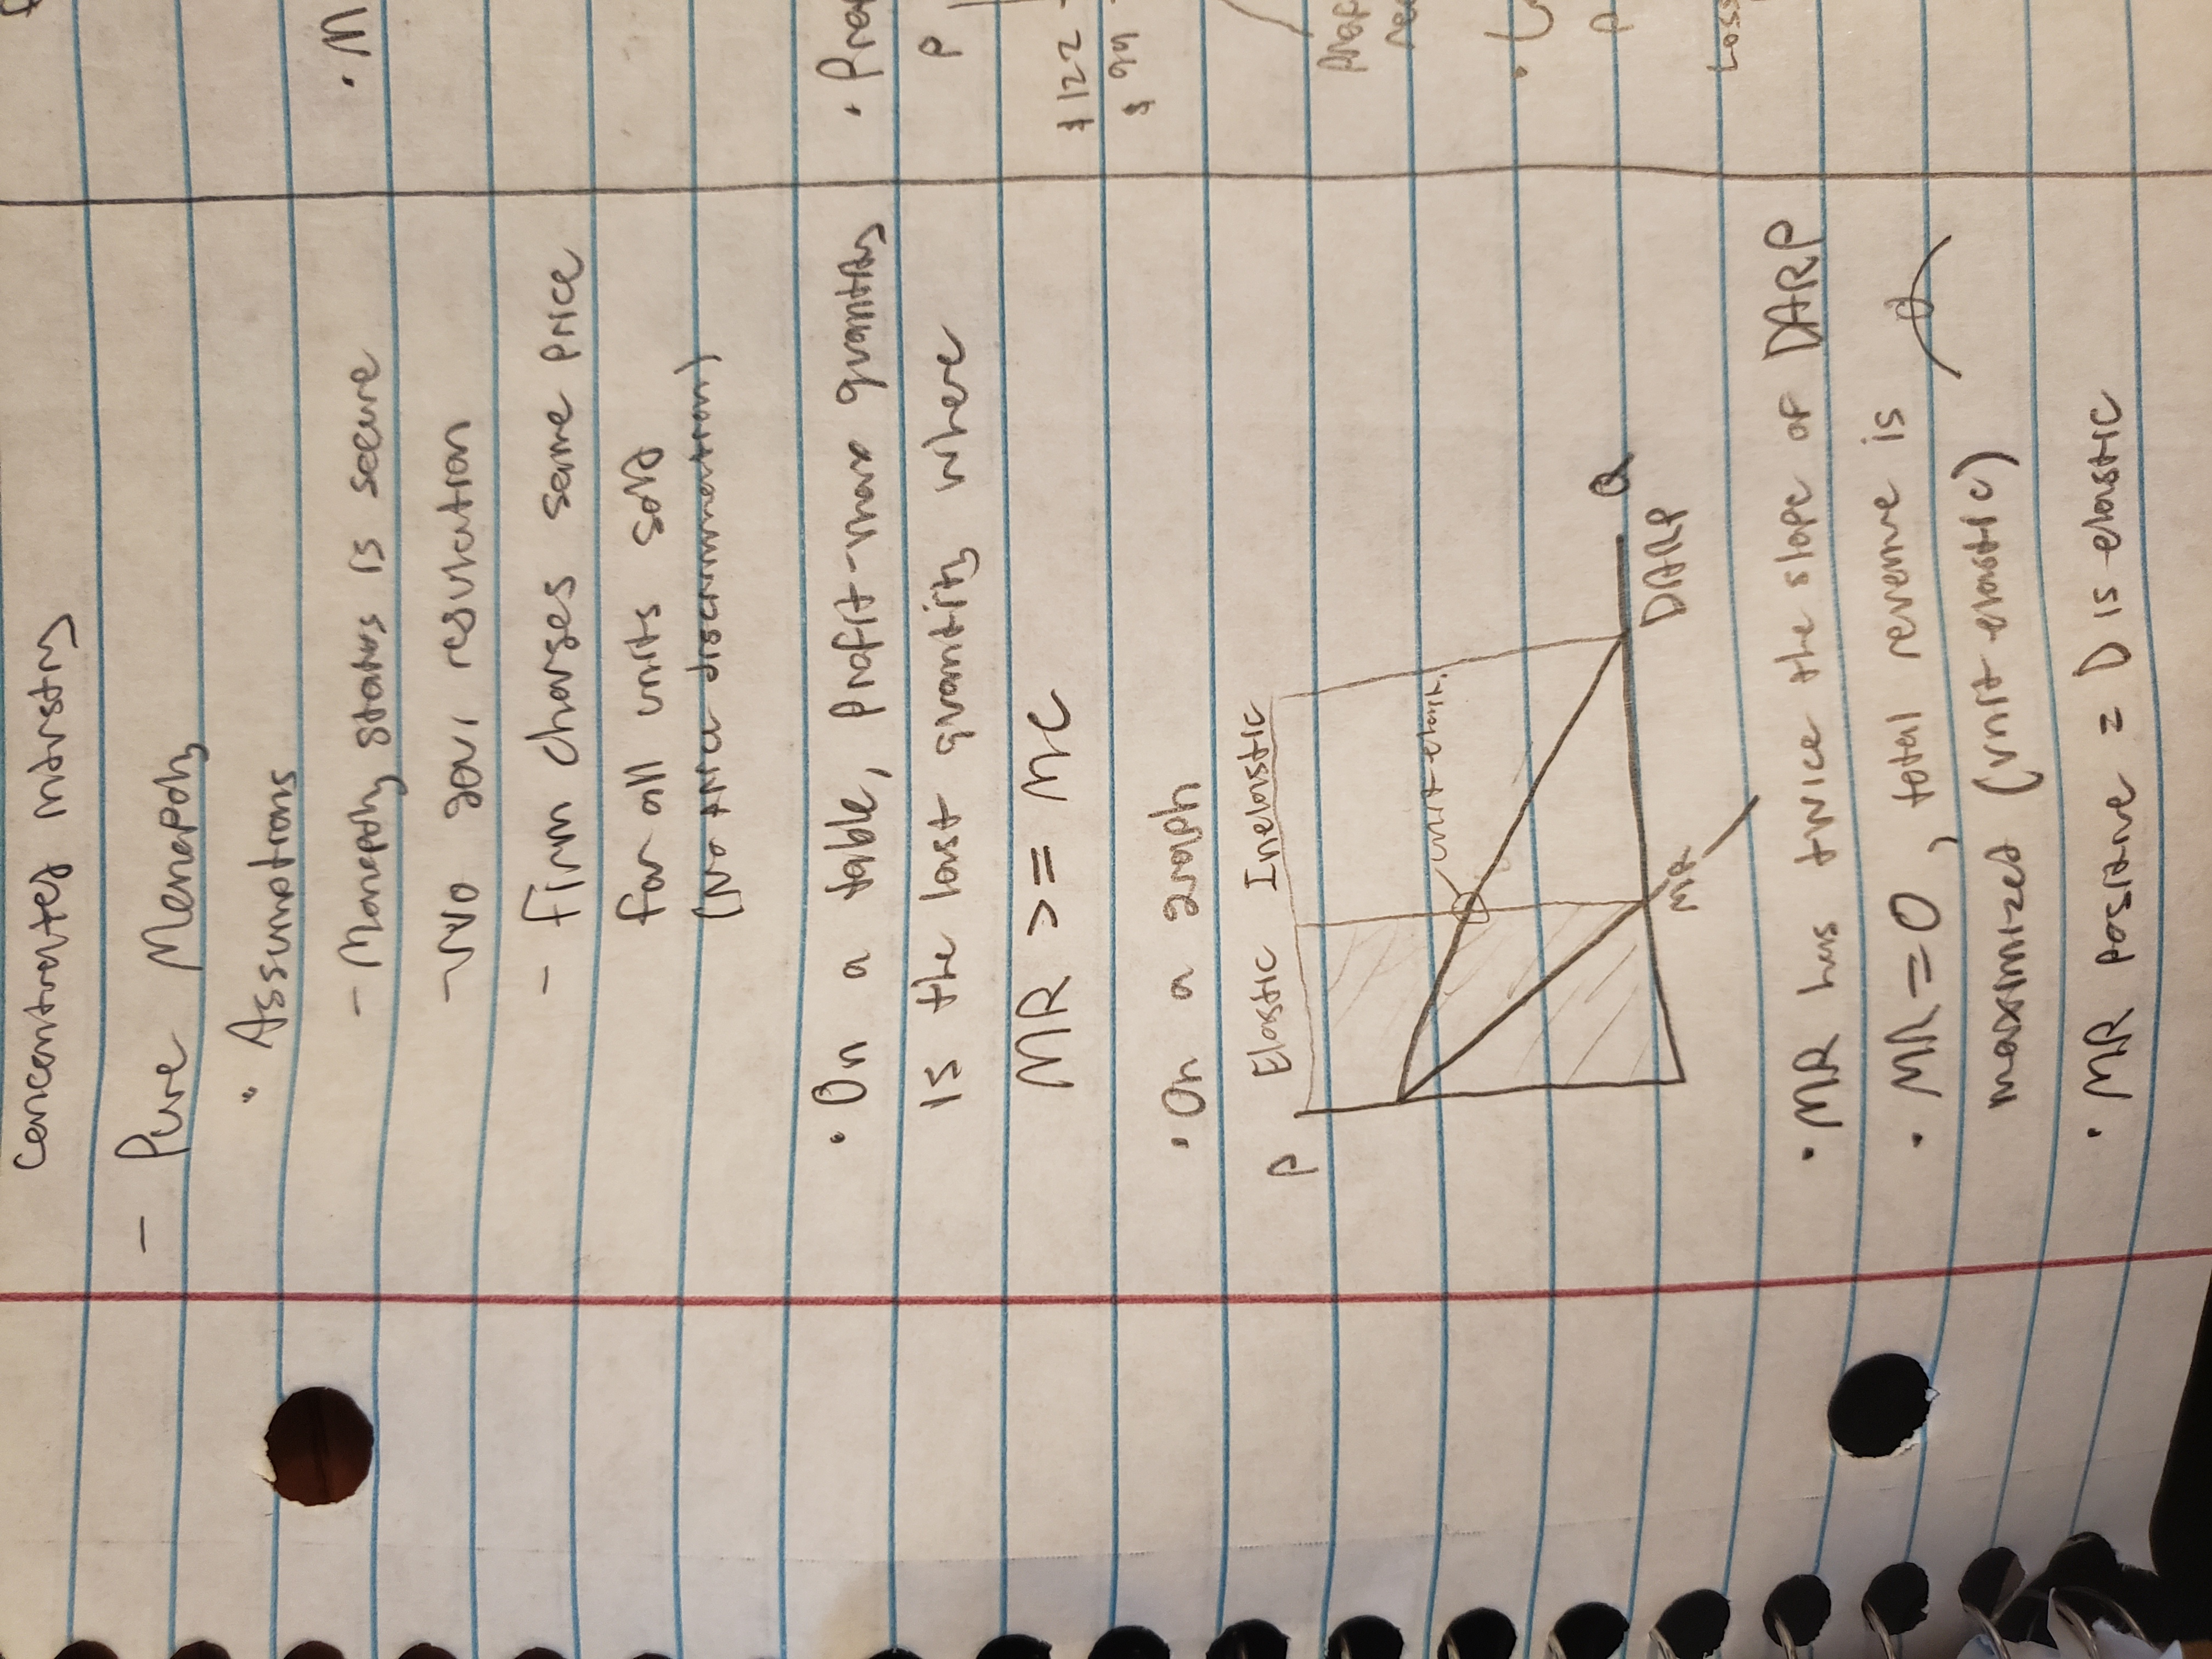 concentrated industry
- Pure Monopoly
• Assumptions
- Monopoly status is secure
- No gov. regulation
- Firm charges same price
for all units sold
(No price discrimination)
• On a table, profit-max quantity
is the last quantity where
MR >= MC
• On a graph
P Elastic Inelastic
unit-elastic
Q
MR DARP
• MR has twice the slope of DARP
• MR = 0, total revenue is
maximized (unit elastic)
• MR positive = D is elastic
• M
P
$122
$ 94
Loss